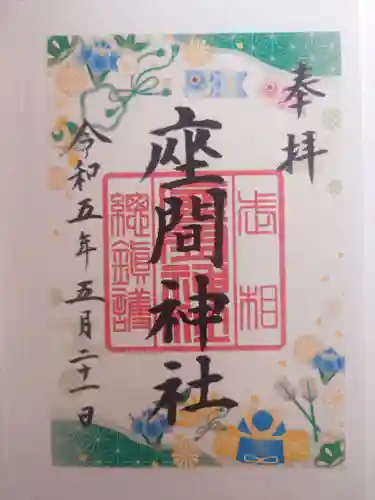 奉拝
座間神社
令和五年五月二十一日
相武
座間神社
總鎮護